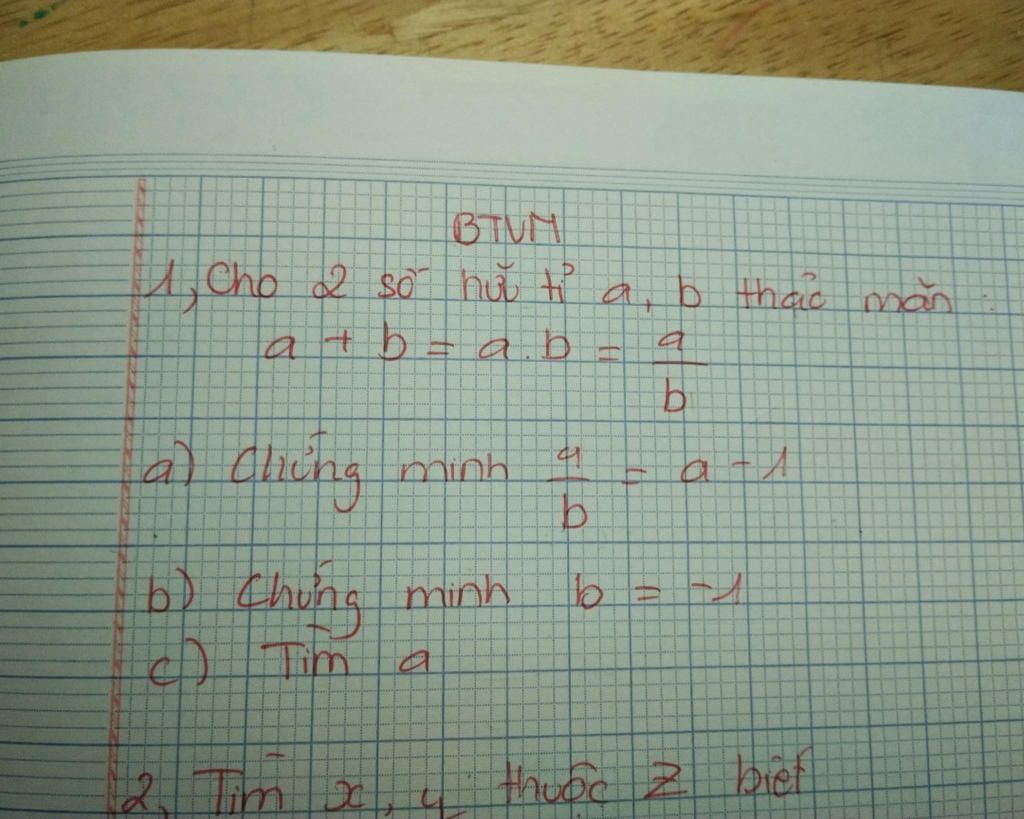 BTVN
1, Cho 2 số hữu tỉ a, b thỏa mãn :
a + b = a . b = a/b
a) Chứng minh a/b = a - 1
b) Chứng minh b = -1
c) Tìm a
2, Tìm x, y thuộc Z biết